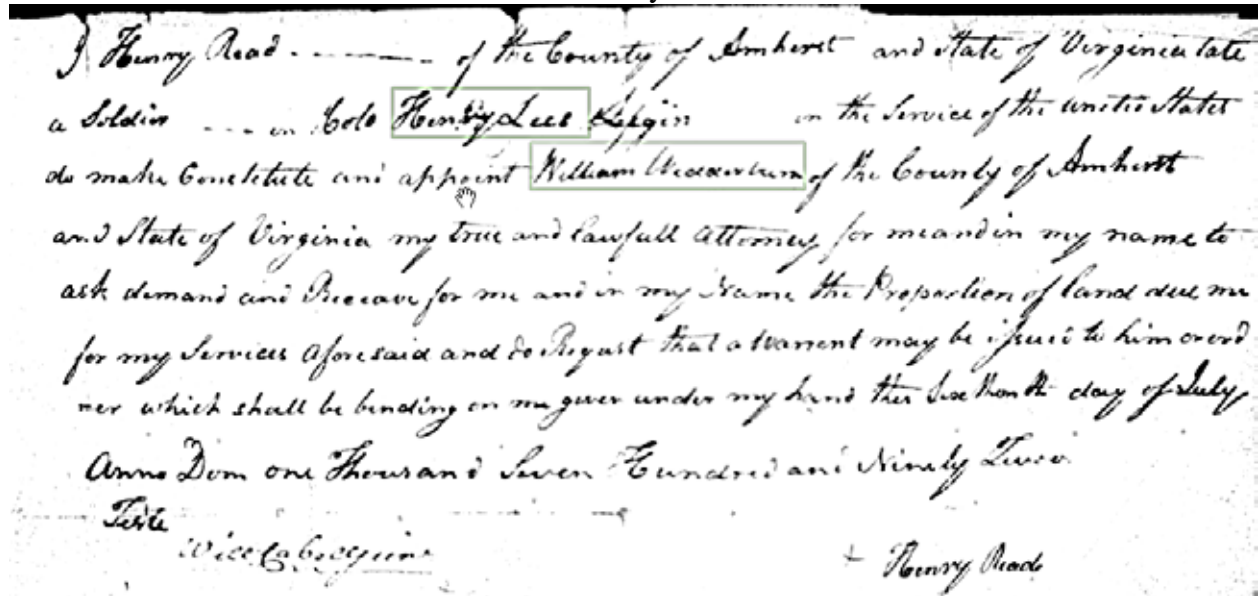 I Henry Read - - - - - - - of the County of Amherst and State of Virginia late
a Soldier - - - in Colo Henry Lees Legion in the Service of the united States
do make Constitute and appoint William Wedderburn of the County of Amherst
and State of Virginia my true and lawfull attorney for me and in my name to
ask demand and Receave for me and in my Name the Proportion of land due me
for my Services aforesaid and do Request that a Warrent may be issued to him or
ner which shall be bending on me given under my hand this day of July
Anno Dom one Thousand Seven Hundred and Ninety Two
Teste
Will Cabell
+ Henry Read